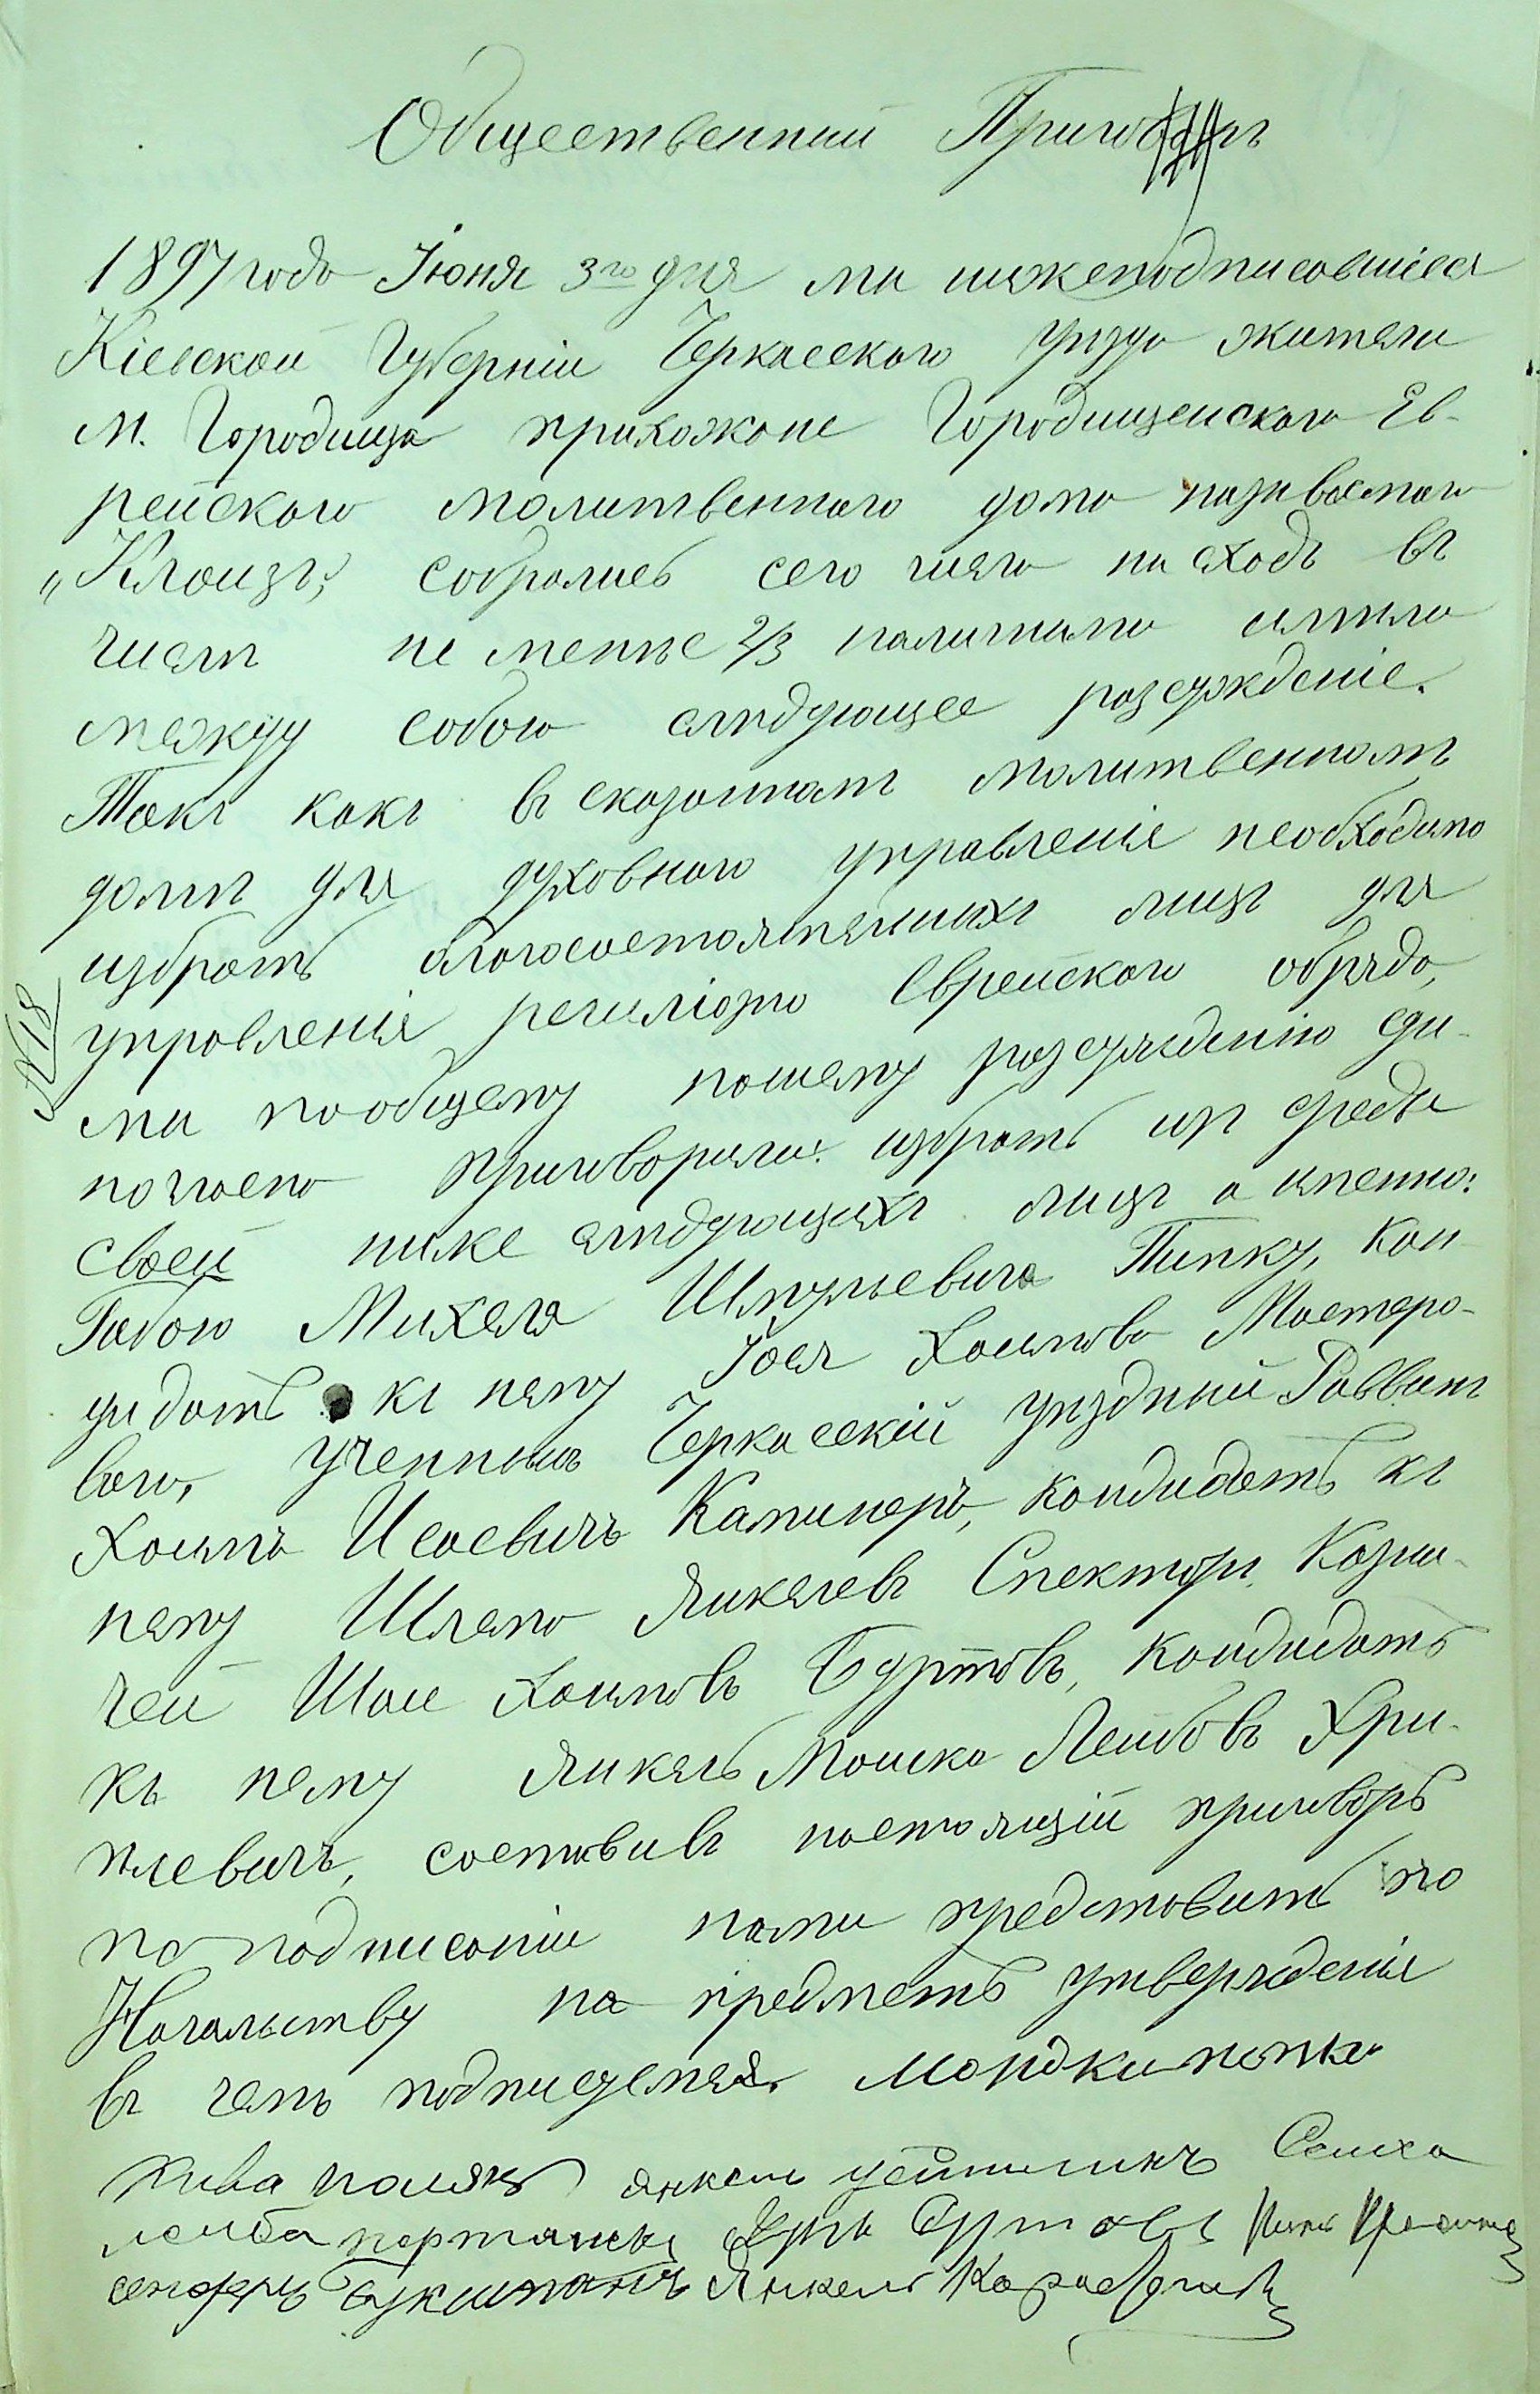 Общественный Приговоръ
1897 года Іюня 3го дня мы нижеподписавшіеся
Кіевской Губерніи Черкасскаго уезда жители
м. Городища прихожане Городищенскаго Ев-
рейскаго молитвеннаго дома называемаго
„Клоизъ", собрались сего числа на сходъ въ
числѣ не менѣе 2/3 имѣли
между собою слѣдующее разсужденіе.
Такъ какъ въ сказанномъ молитвенномъ
домѣ для духовнаго управленія необходимо
избрать благосостоятельныхъ лицъ для
управленія религіозно Еврейскаго обряда,
№18
мы по общему нашему разсужденію еди-
погласно приговорили: избрать изъ среды
своей ниже слѣдующихъ лицъ а именно:
Габою Михеля Шмульевича Типку, кан
дидатъ къ нему Іося Хаимова Мастеро-
ваго, ученнымъ Черкасскій уѣздный Раввинъ
Хаимъ Исаевичъ Каминеръ, кандидатъ къ
нему Шлема Янкелевъ Спекторъ. Казна-
чей Шая Хаимовъ Буртовъ, кандидатъ
къ нему Янкель Мошко Лейбовъ Хри-
плевичъ, составивъ настоящій приговоръ
по подписаніи нами представить по
Начальству на предметъ утвержденія
въ чемъ подписуемся.
Акива поляк янкель Сумха
лейба Буртовъ
Янкель